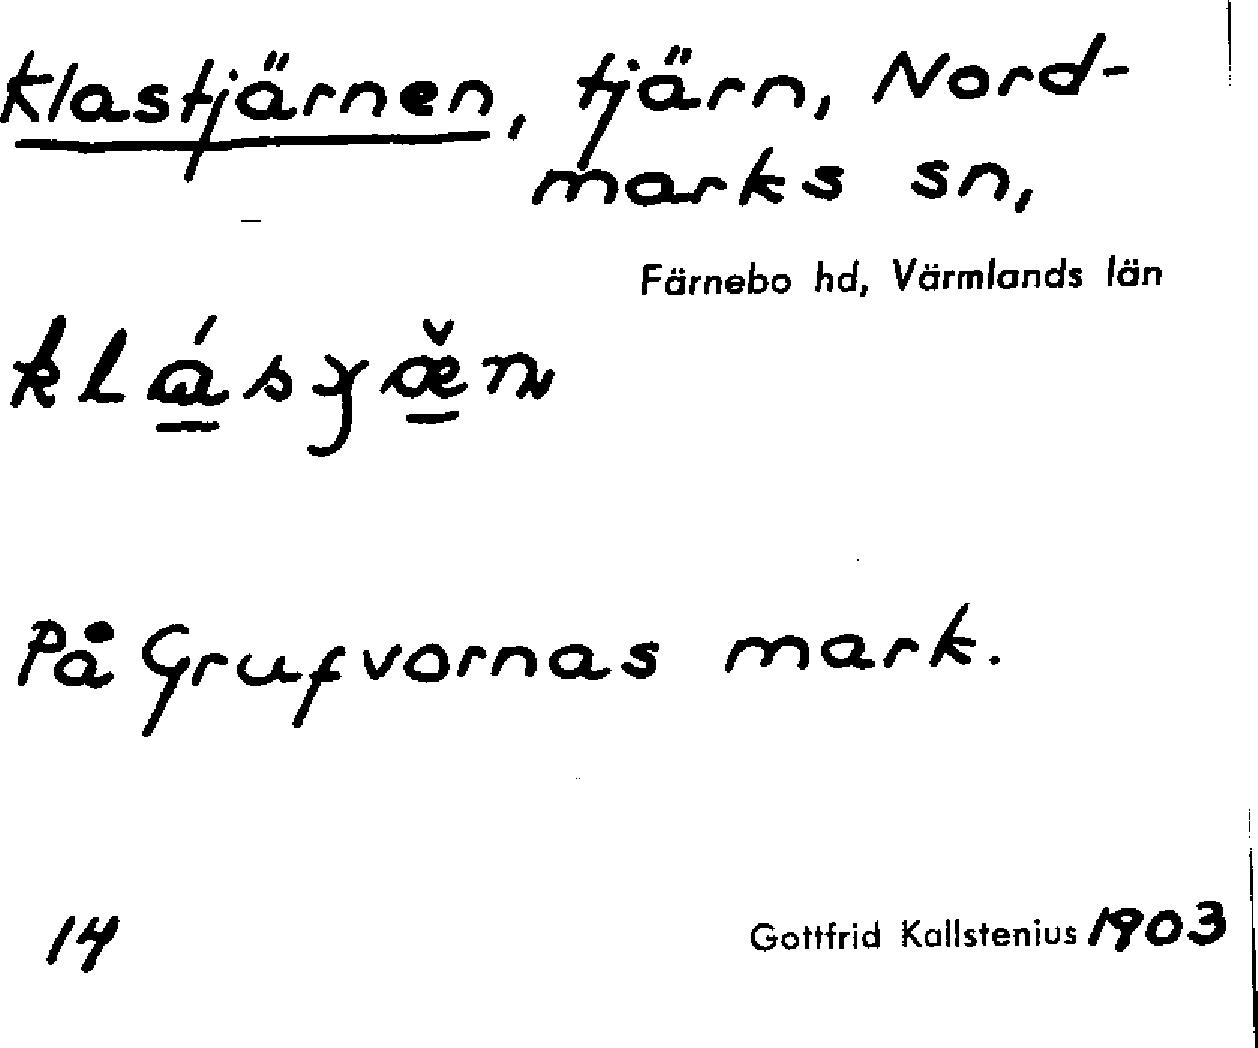 Klastjärnen, tjärn, Nord-
marks sn,
Färnebo hd, Värmlands län
På Grufvornas mark.
14
Gottfrid Kallstenius 1903